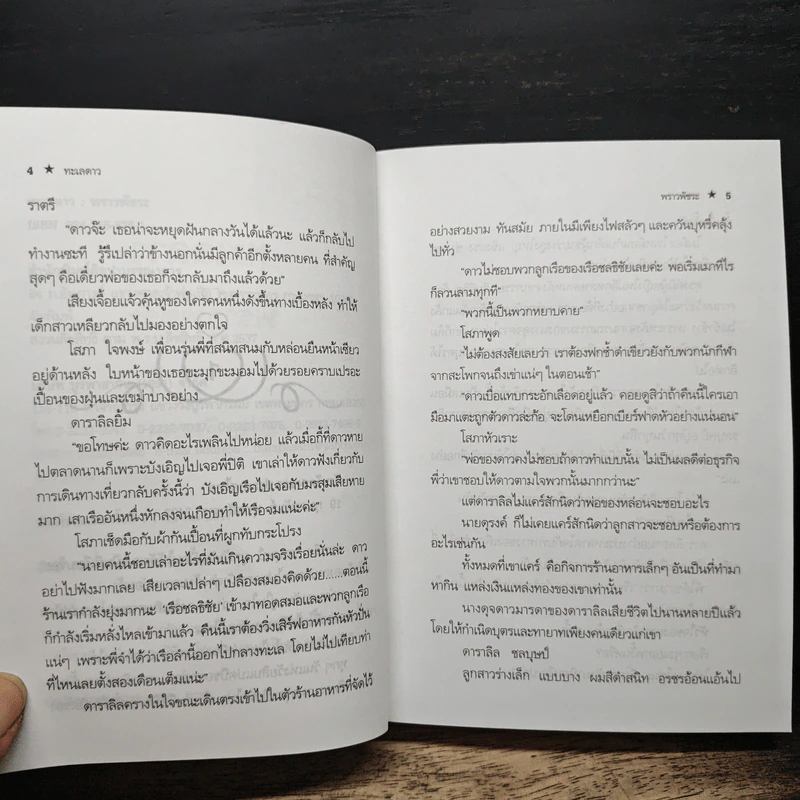 4 ★ ทะเลดาว
ราตรี
"ดาวจ๊ะ เธอน่าจะหยุดฝันกลางวันได้แล้วนะ แล้วก็กลับไป
ทำงานซะที รู้รึเปล่าว่าข้างนอกนั่นมีลูกค้าอีกตั้งหลายคน ที่สำคัญ
สุดๆ คือเดี๋ยวพ่อของเธอก็จะกลับมาถึงแล้วด้วย"
เสียงเจื้อยแจ้วคุ้นหูของใครคนหนึ่งดังขึ้นทางเบื้องหลัง ทำให้
เด็กสาวเหลียวกลับไปมองอย่างตกใจ
โสภา ใจพงษ์ เพื่อนรุ่นพี่ที่สนิทสนมกับหล่อนยืนหน้าเซียว
อยู่ด้านหลัง ใบหน้าของเธอขะมุกขะมอมไปด้วยรอยคราบเปรอะ
เปื้อนของฝุ่นและเขม่าบางอย่าง
ดาราลิลยิ้ม
"ขอโทษค่ะ ดาวคิดอะไรเพลินไปหน่อย แล้วเมื่อกี้ที่ดาวหาย
ไปตลาดนานก็เพราะบังเอิญไปเจอพี่ปิติ เขาเล่าให้ดาวฟังเกี่ยวกับ
การเดินทางเที่ยวกลับครั้งนี้ว่า บังเอิญเรือไปเจอกับมรสุมเสียหาย
มาก เสาเรืออันหนึ่งหักลงจนเกือบทำให้เรือจมแน่ะค่ะ"
โสภาเช็ดมือกับผ้ากันเปื้อนที่ผูกทับกระโปรง
"นายคนนี้ชอบเล่าอะไรที่มันเกินความจริงเรื่อยนั่นล่ะ ดาว
อย่าไปฟังมากเลย เสียเวลาเปล่าๆ เปลืองสมองคิดด้วย......ตอนนี้
ร้านเรากำลังยุ่งมากนะ 'เรือชลธิชัย' เข้ามาทอดสมอและพวกลูกเรือ
ก็กำลังเริ่มหลั่งไหลเข้ามาแล้ว คืนนี้เราต้องวิ่งเสิร์ฟอาหารกันหัวปั่น
แน่ๆ เพราะพี่จำได้ว่าเรือลำนี้ออกไปกลางทะเล โดยไม่ไปเทียบท่า
ที่ไหนเลยตั้งสองเดือนเต็มแน่ะ"
ดาราลิลครางในใจขณะเดินตรงเข้าไปในตัวร้านอาหารที่จัดไว้
พราวพัชระ ★ 5
อย่างสวยงาม ทันสมัย ภายในมีเพียงไฟสลัวๆ และควันบุหรี่คลุ้ง
ไปทั่ว
"ดาวไม่ชอบพวกลูกเรือของเรือชลธิชัยเลยค่ะ พอเริ่มเมาทีไร
ก็ลวนลามทุกที"
"พวกนี้เป็นพวกหยาบคาย"
โสภาพูด
"ไม่ต้องสงสัยเลยว่า เราต้องฟกช้ำดำเขียวยังกับพวกนักกีฬา
จากสะโพกจนถึงเข่าแน่ๆ ในตอนเช้า"
"ดาวเบื่อแทบกระอักเลือดอยู่แล้ว คอยดูสิว่าถ้าคืนนี้ใครเอา
มือมาแตะถูกตัวดาวล่ะก้อ จะโดนเหยือกเบียร์ฟาดหัวอย่างแน่นอน"
โสภาหัวเราะ
"พ่อของดาวคงไม่ชอบถ้าดาวทำแบบนั้น ไม่เป็นผลดีต่อธุรกิจ
พี่ว่าเขาชอบให้ดาวตามใจพวกนั้นมากกว่านะ"
แต่ดาราลิลไม่แคร์สักนิดว่าพ่อของหล่อนจะชอบอะไร
นายดุรงค์ ก็ไม่เคยแคร์สักนิดว่าลูกสาวจะชอบหรือต้องการ
อะไรเช่นกัน
ทั้งหมดที่เขาแคร์ คือกิจการร้านอาหารเล็กๆ อันเป็นที่ทำมา
หากิน แหล่งเงินแหล่งทองของเขาเท่านั้น
นางดุจดาวมารดาของดาราลิลเสียชีวิตไปนานหลายปีแล้ว
โดยให้กำเนิดบุตรและทายาทเพียงคนเดียวแก่เขา
ดาราลิล ชลบุษป์
ลูกสาวร่างเล็ก แบบบาง ผมสีดำสนิท อรชรอ้อนแอ้นไป